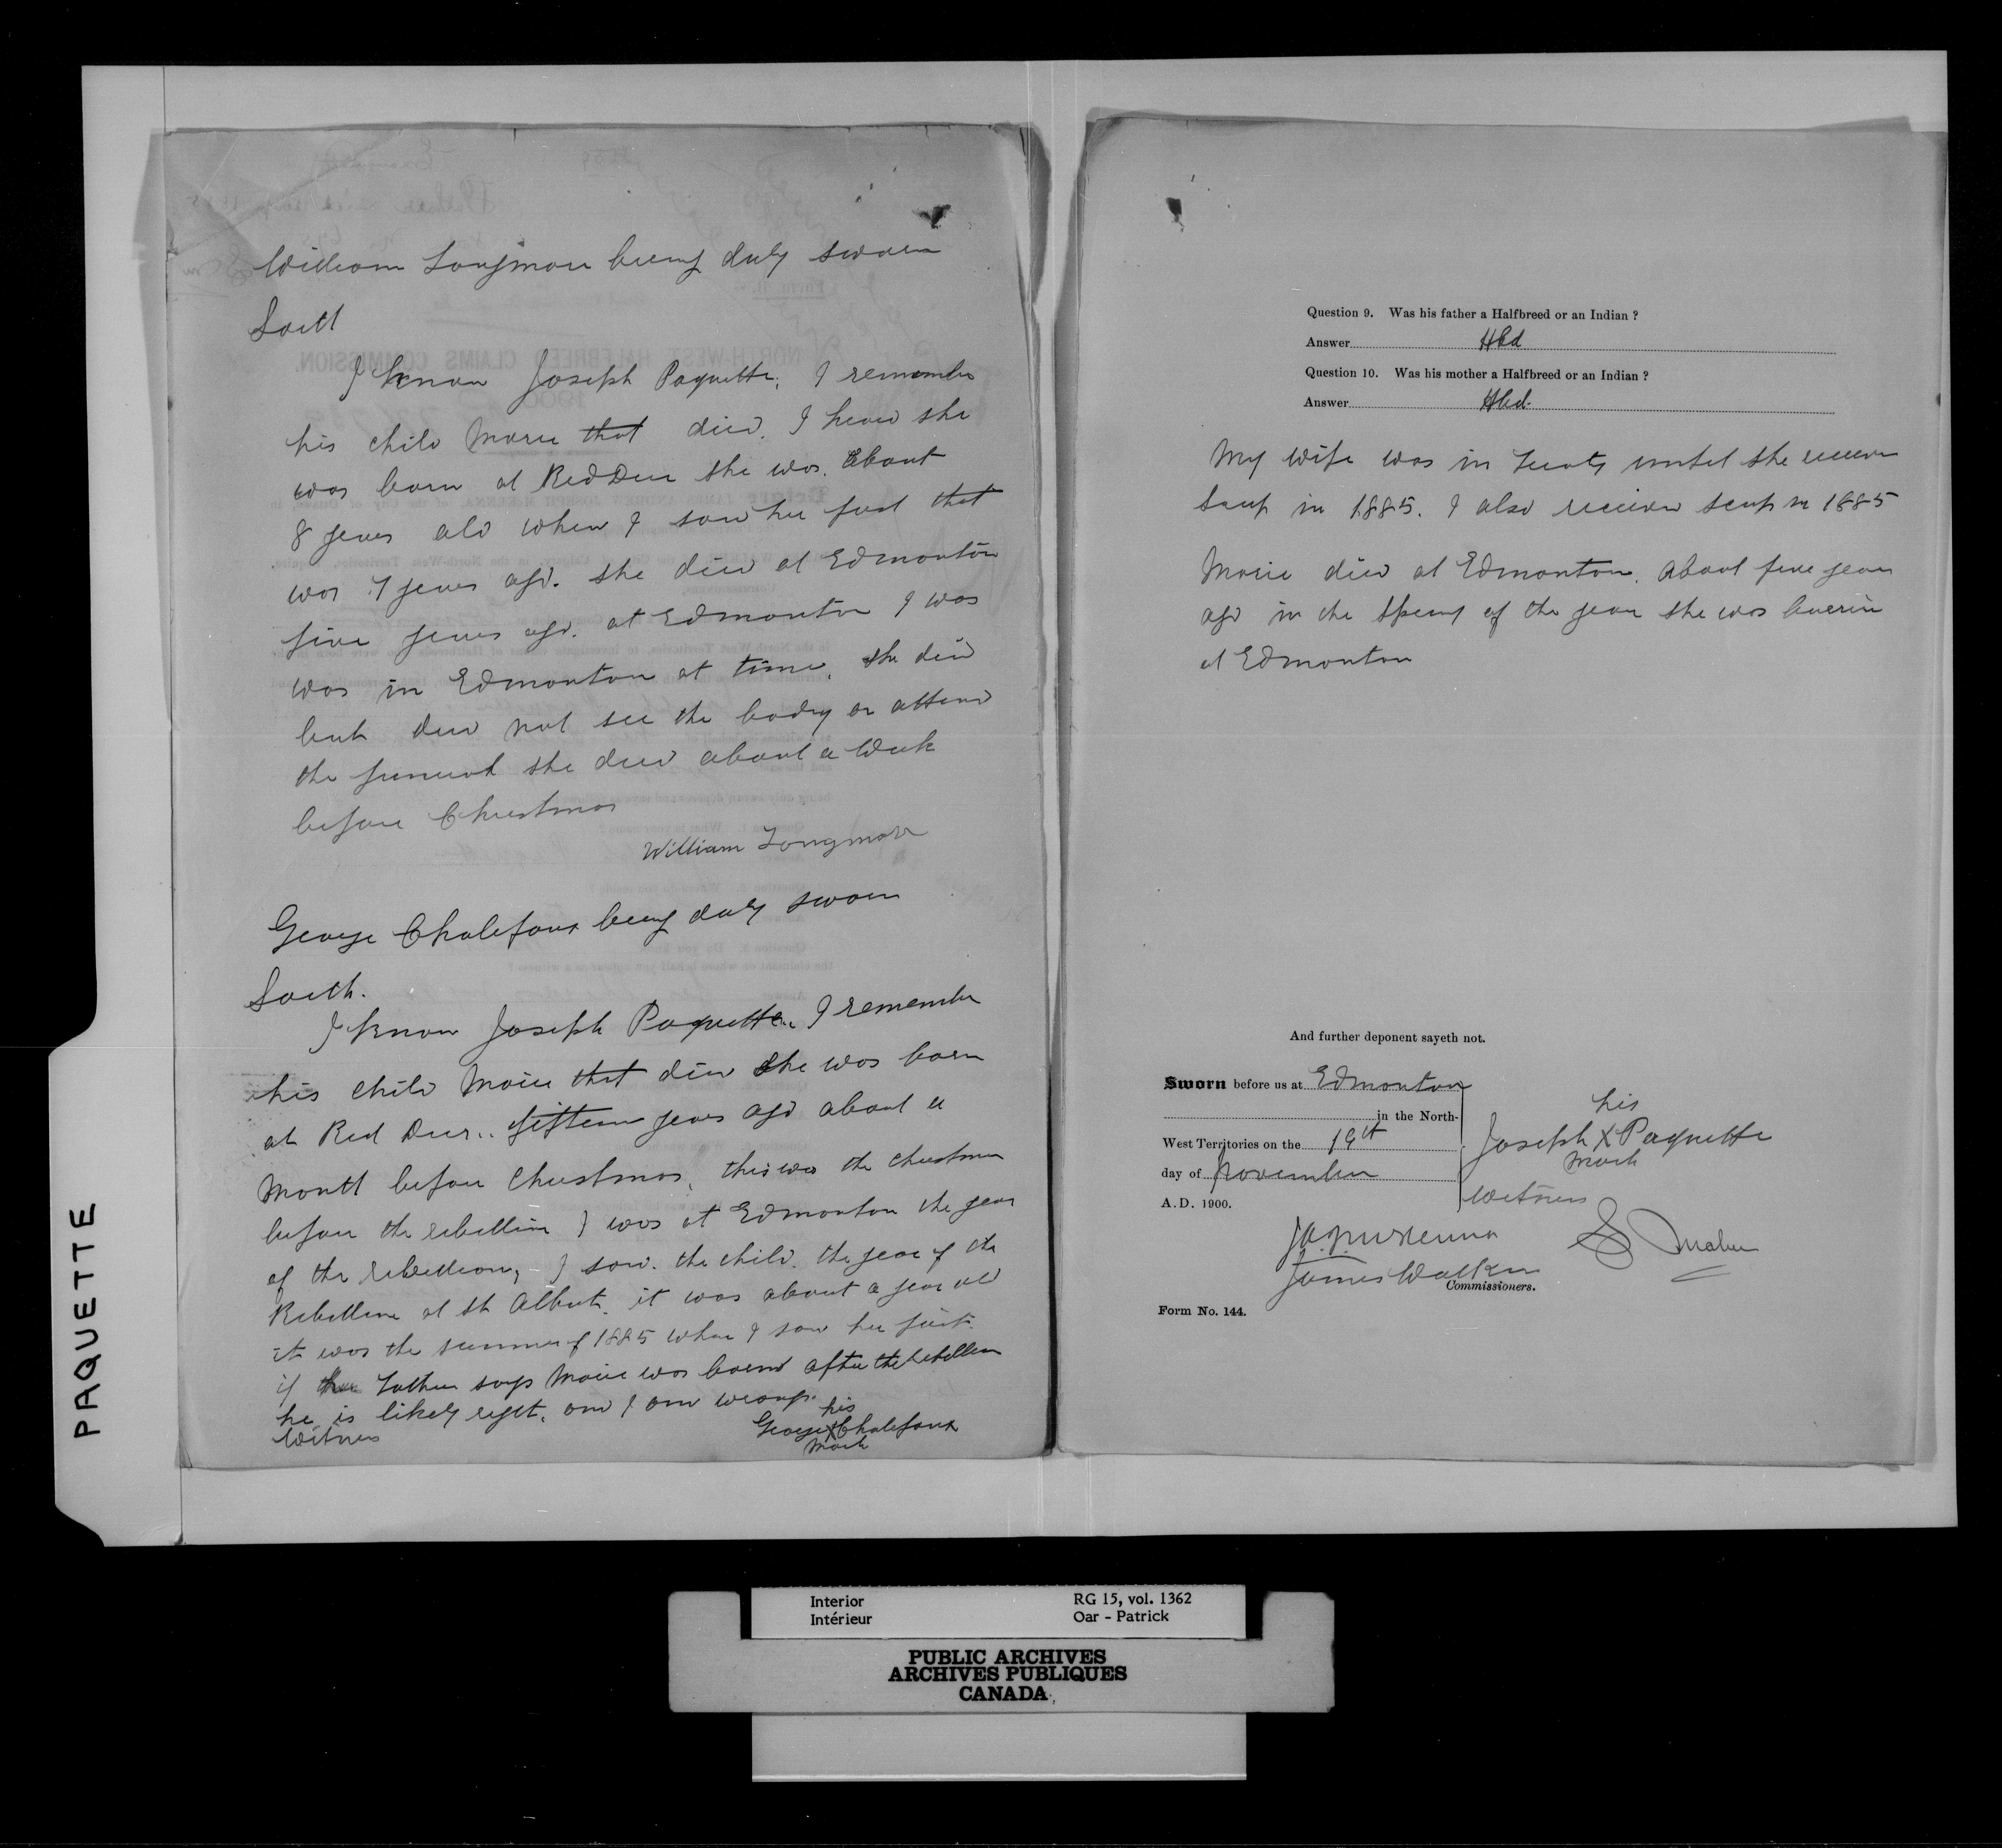 William Longmore being duly sworn
Saith
I know Joseph Paquette. I remember
his child Marie that died. I heard she
was born at Red Deer she was about
8 years old when I saw her first that
was 7 years ago. she died at Edmonton
five years ago. at Edmonton I was
was in Edmonton at time. she died
but did not see the body or attend
the funeral she died about a week
before Christmas
William Longmore
George Chalefoux being duly sworn
Saith.
I know Joseph Paquette. I remember
his child Marie that died she was born
at Red Deer.. fifteen years ago about a
month before Christmas, this was the Christmas
before the rebellion I was at Edmonton the year
of the rebellion, - I saw the child. the year of the
Rebellion at St Albert. it was about a year old
it was the summer of 1885 when I saw her first.
if Father says Marie was born after the rebellion
he is likely right. and I am wrong.
his
Witness
George X Chalefoux
mark
Question 9. Was his father a Halfbreed or an Indian ?
Answer Hbd
Question 10. Was his mother a Halfbreed or an Indian ?
Answer Hbd.
My wife was in Treaty until she received
scrip in 1885. I also received scrip in 1885
Marie died at Edmonton. About five years
ago in the Spring of the year she was buried
at Edmonton
And further deponent sayeth not.
Sworn before us at Edmonton
in the North-
West Territories on the 19th
day of November
A.D. 1900.
his
Joseph X Paquette
mark
Witness
J.A.J. McKenna
James Walker
Commissioners.
Form No. 144.
PAQUETTE
Interior
Intérieur
RG 15, vol. 1362
Oar - Patrick
PUBLIC ARCHIVES
ARCHIVES PUBLIQUES
CANADA